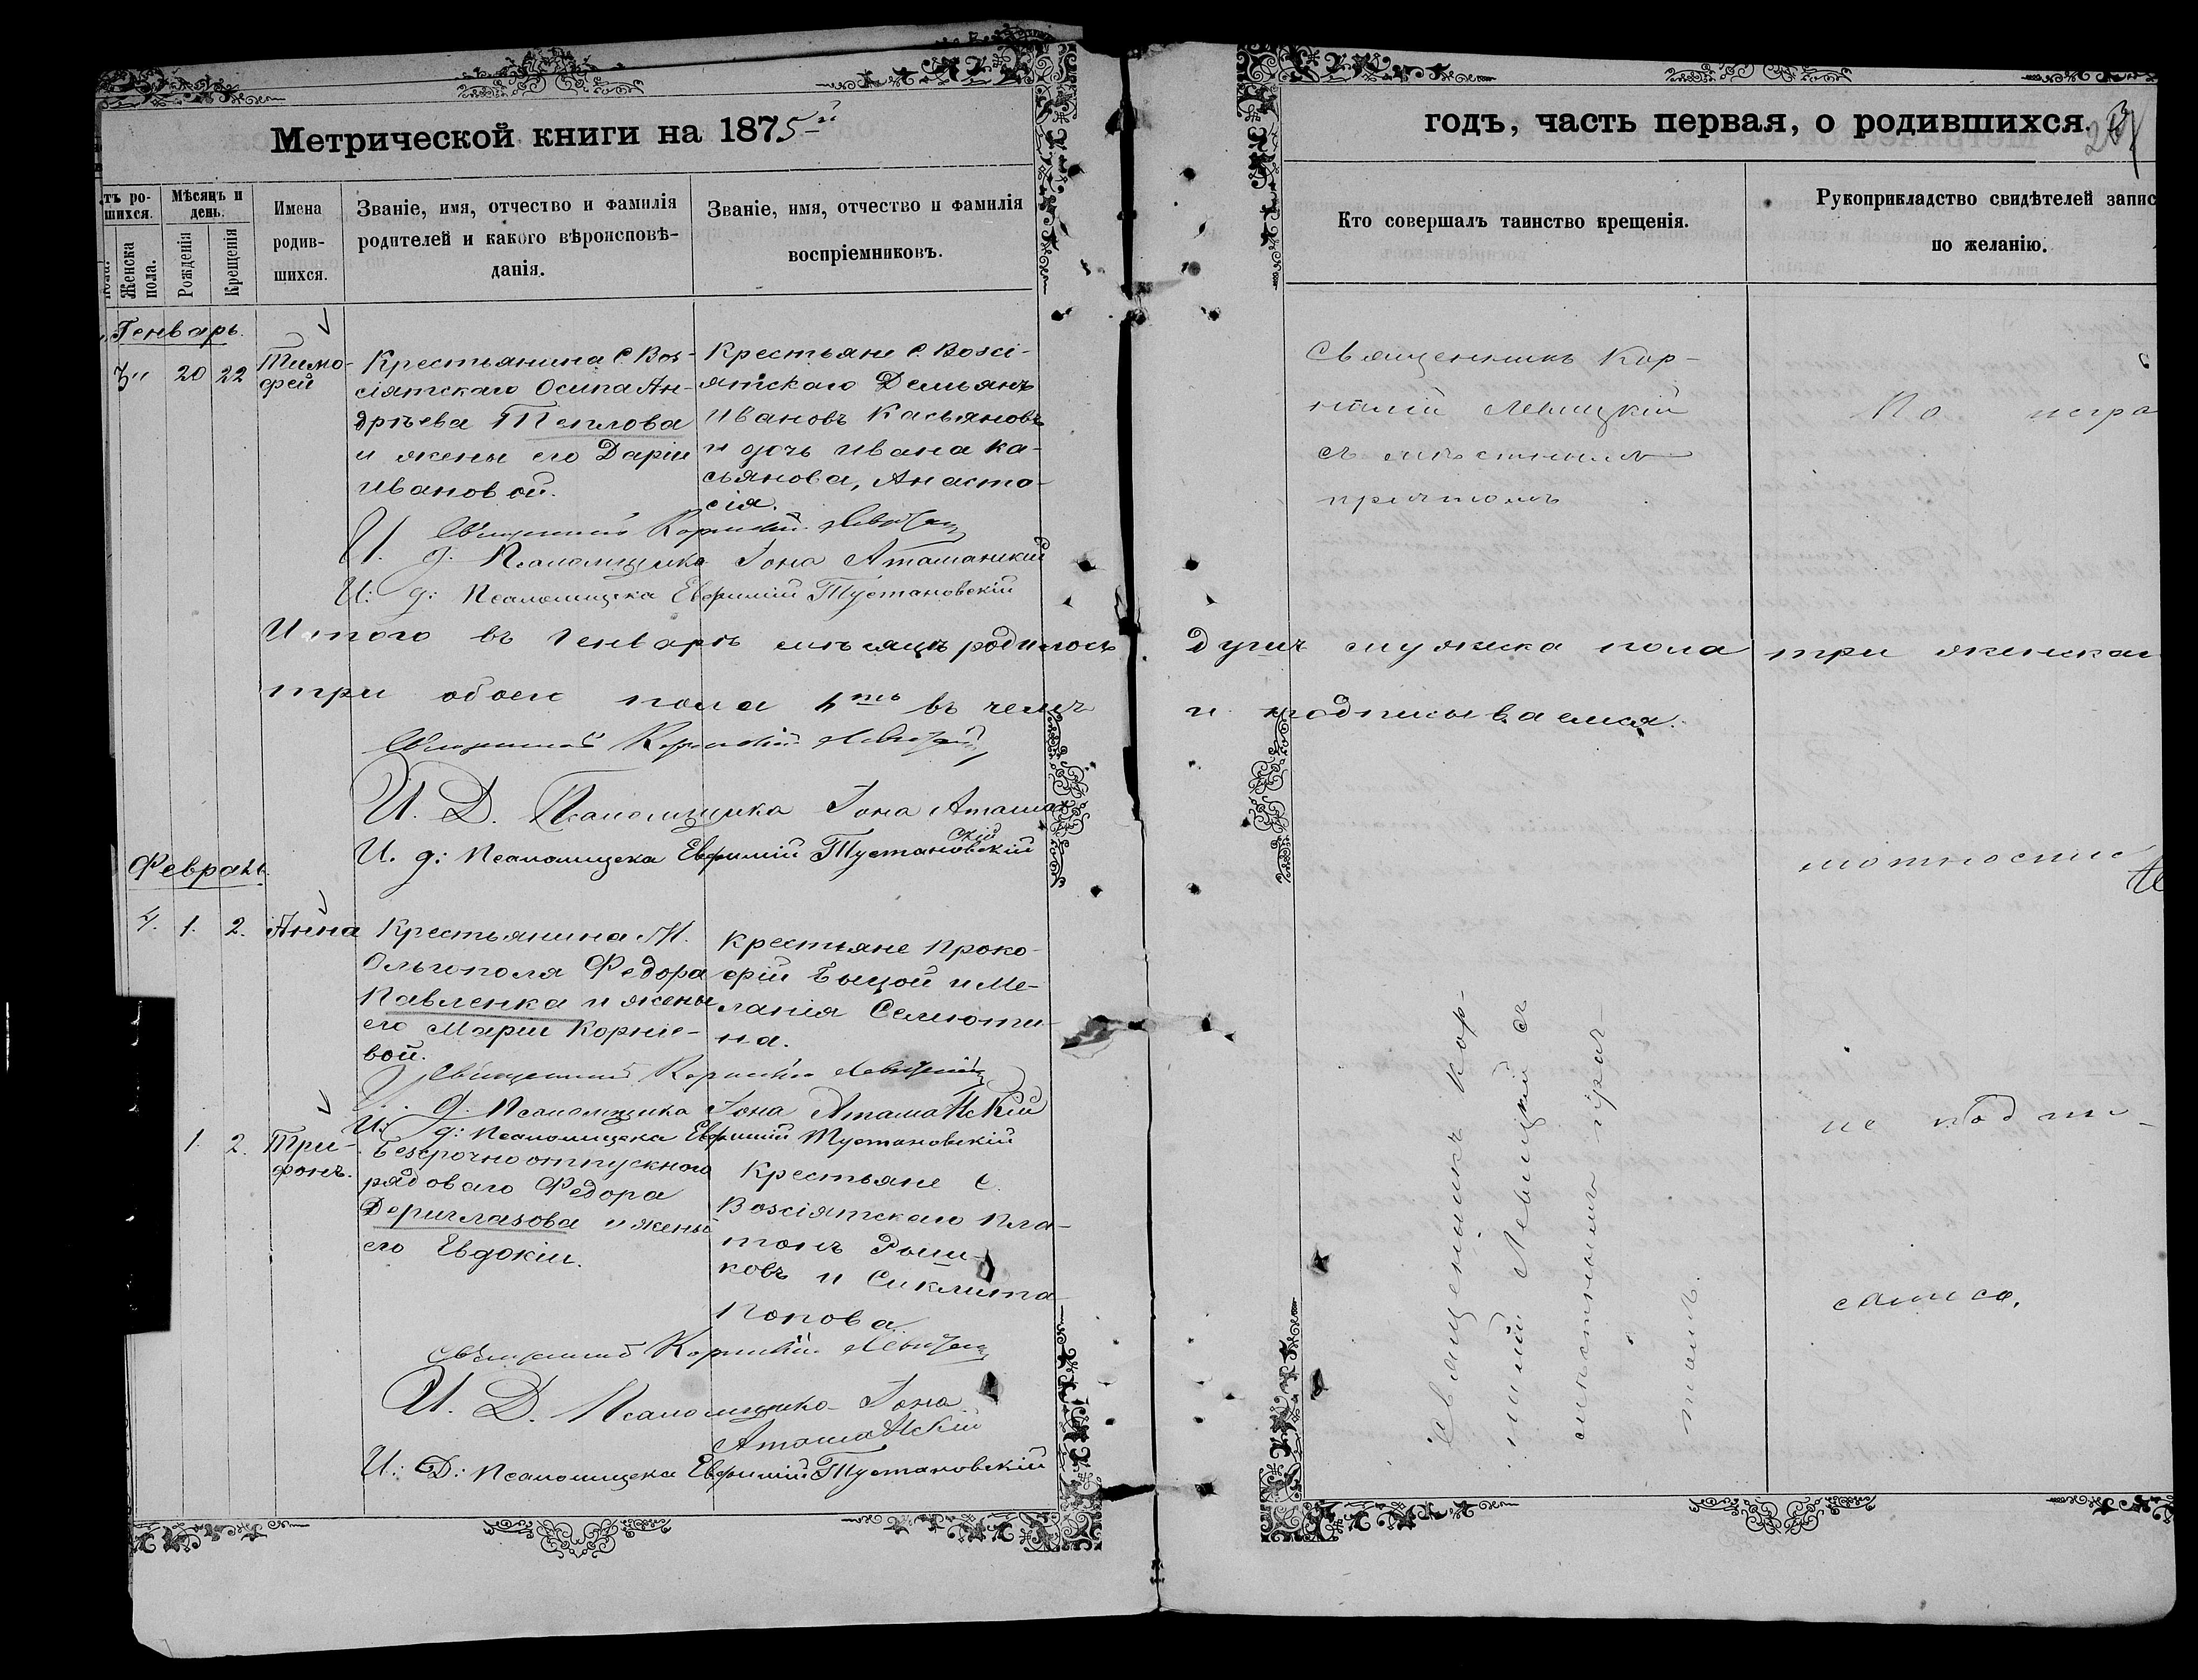 Метрической книги на 1875й
годъ, часть первая, о родившихся.
тъ ро-
шихся.
Мѣсяцъ и
день.
Женска
пола.
Рожденія
Крещенія
Имена
родив-
шихся.
Званіе, имя, отчество и фамилія
родителей и какого вѣроисповѣ-
данія.
Званіе, имя, отчество и фамилія
воспріемниковъ.
Кто совершалъ таинство крещенія.
Рукоприкладство свидѣтелей запис
по желанію.
Генварь.
3 20 22
Тимо-
фей
Крестьянина С. Воз-
сіятскаго Осипа Ан-
дрѣева Теплова
и жены его Даріи
Ивановой.
Крестьяне с. Возсі-
ятскаго Демьянъ
Ивановъ Касьяновъ
и дочь Ивана Ка-
сьянова, Анаста-
сія.
Священникъ Кор-
нилій Левицкій
съ мѣстнымъ
причтомъ
По негра
Священникъ Корнилій Левицкій
И. д. Псаломщика Іона Аташанский
И: д: Псаломщика Евфимій Тустановскій
Итого въ Генварѣ мѣсяцѣ родилось
душъ мужска пола три женскаг
три обоего пола 6ть въ чемъ
и подписываемся.
Священникъ Корнилій Левицкій
И. Д. Псаломщика Іона Аташан
скій
И. д: Псаломщика Евфимій Тустановскій
Февраль
мотности
4. 1. 2. Анна
Крестьянина М.
Ольгополя Федора
Павленка и жены
его Маріи Корніе-
вой.
Крестьяне Проко-
фій Быцой и Ме-
ланія Селюти-
на.
Священникъ Корнилій Левицкій
И. д. Псаломщика Іона Аташанскій
И. д: Псаломщика Евфимій Тустановскій
1. 2. Три-
фонъ.
Безсрочноотпускного
рядоваго Федора
Дериглазова и жены
его Евдокіи.
Крестьяне с.
Возсіятскаго Пла-
тонъ
ковъ и Синклита
Попова.
Священникъ Кор-
нилій Левицкій съ
мѣстнымъ прич-
томъ.
не подпи-
сался.
Священникъ Корнилій Левицкій
И. Д. Псаломщика Іона
Аташанскій
И.: Д: Псаломщика Евфимій Тустановскій